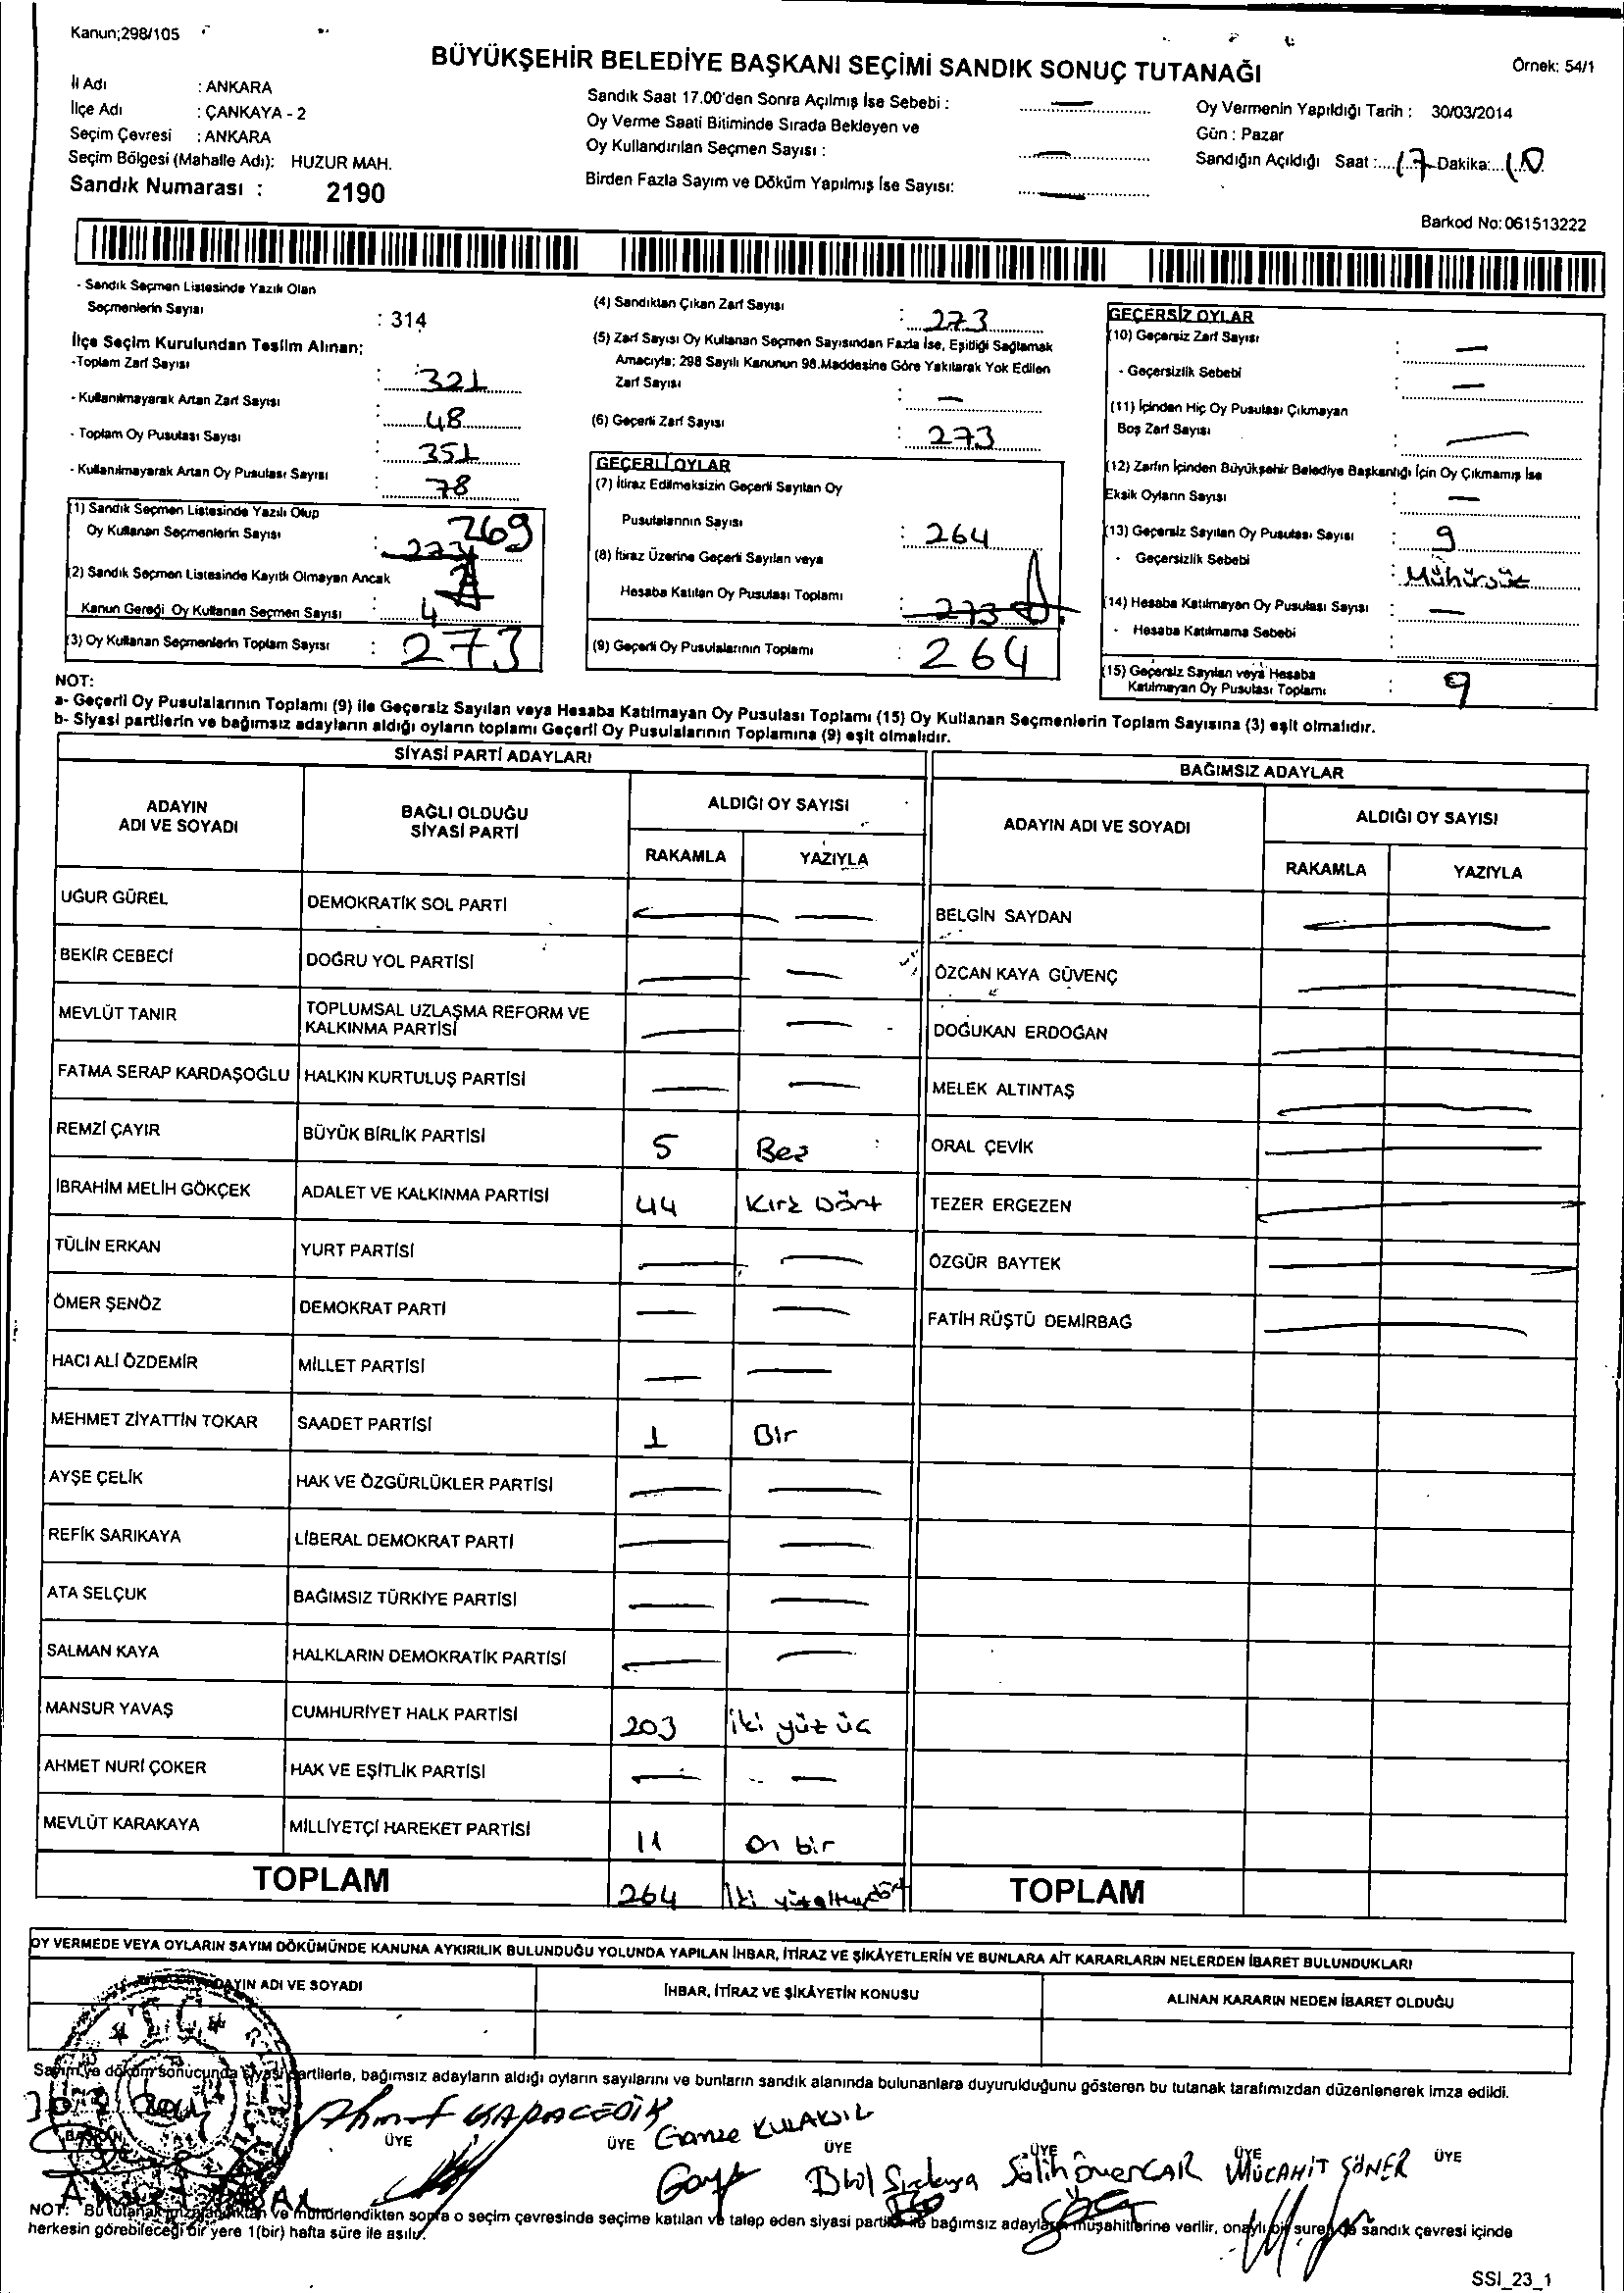 Kanun;298/105
BÜYÜKŞEHİR BELEDİYE BAŞKANI SEÇİMİ SANDIK SONUÇ TUTANAĞI
Örnek: 54/1
İl Adı : ANKARA
İlçe Adı : ÇANKAYA - 2
Seçim Çevresi : ANKARA
Seçim Bölgesi (Mahalle Adı): HUZUR MAH.
Sandık Numarası : 2190
Sandık Saat 17.00'den Sonra Açılmış İse Sebebi : —
Oy Verme Saati Bitiminde Sırada Bekleyen ve
Oy Kullandırılan Seçmen Sayısı : —
Birden Fazla Sayım ve Döküm Yapılmış İse Sayısı: —
Oy Vermenin Yapıldığı Tarih : 30/03/2014
Gün : Pazar
Sandığın Açıldığı Saat :....17..Dakika:...10
Barkod No:061513222
- Sandık Seçmen Listesinde Yazılı Olan
Seçmenlerin Sayısı : 314
İlçe Seçim Kurulundan Teslim Alınan;
-Toplam Zarf Sayısı : 321
- Kullanılmayarak Artan Zarf Sayısı : 48
- Toplam Oy Pusulası Sayısı : 351
- Kullanılmayarak Artan Oy Pusulası Sayısı : 78
(1) Sandık Seçmen Listesinde Yazılı Olup
Oy Kullanan Seçmenlerin Sayısı : 273 269
(2) Sandık Seçmen Listesinde Kayıtlı Olmayan Ancak
Kanun Gereği Oy Kullanan Seçmen Sayısı : 4
(3) Oy Kullanan Seçmenlerin Toplam Sayısı : 273
(4) Sandıktan Çıkan Zarf Sayısı : 273
(5) Zarf Sayısı Oy Kullanan Seçmen Sayısından Fazla İse, Eşitliği Sağlamak
Amacıyla; 298 Sayılı Kanunun 98.Maddesine Göre Yakılarak Yok Edilen
Zarf Sayısı : —
(6) Geçerli Zarf Sayısı : 273
GEÇERLİ OYLAR
(7) İtiraz Edilmeksizin Geçerli Sayılan Oy
Pusulalarının Sayısı : 264
(8) İtiraz Üzerine Geçerli Sayılan veya
Hesaba Katılan Oy Pusulası Toplamı : 273
(9) Geçerli Oy Pusulalarının Toplamı : 264
GEÇERSİZ OYLAR
(10) Geçersiz Zarf Sayısı : —
- Geçersizlik Sebebi : —
(11) İçinden Hiç Oy Pusulası Çıkmayan
Boş Zarf Sayısı : —
(12) Zarfın İçinden Büyükşehir Belediye Başkanlığı İçin Oy Çıkmamış İse
Eksik Oyların Sayısı : —
(13) Geçersiz Sayılan Oy Pusulası Sayısı : 9
- Geçersizlik Sebebi : Mühürsüz
(14) Hesaba Katılmayan Oy Pusulası Sayısı : —
- Hesaba Katılmama Sebebi :
(15) Geçersiz Sayılan veya Hesaba
Katılmayan Oy Pusulası Toplamı : 9
NOT:
a- Geçerli Oy Pusulalarının Toplamı (9) ile Geçersiz Sayılan veya Hesaba Katılmayan Oy Pusulası Toplamı (15) Oy Kullanan Seçmenlerin Toplam Sayısına (3) eşit olmalıdır.
b- Siyasi partilerin ve bağımsız adayların aldığı oyların toplamı Geçerli Oy Pusulalarının Toplamına (9) eşit olmalıdır.
SİYASİ PARTİ ADAYLARI
ADAYIN ADI VE SOYADI
BAĞLI OLDUĞU SİYASİ PARTİ
ALDIĞI OY SAYISI
RAKAMLA YAZIYLA
UĞUR GÜREL DEMOKRATİK SOL PARTİ — —
BEKİR CEBECİ DOĞRU YOL PARTİSİ — —
MEVLÜT TANIR TOPLUMSAL UZLAŞMA REFORM VE KALKINMA PARTİSİ — —
FATMA SERAP KARDAŞOĞLU HALKIN KURTULUŞ PARTİSİ — —
REMZİ ÇAYIR BÜYÜK BİRLİK PARTİSİ 5 Beş
İBRAHİM MELİH GÖKÇEK ADALET VE KALKINMA PARTİSİ 44 Kırk Dört
TÜLİN ERKAN YURT PARTİSİ — —
ÖMER ŞENÖZ DEMOKRAT PARTİ — —
HACI ALİ ÖZDEMİR MİLLET PARTİSİ — —
MEHMET ZİYATTİN TOKAR SAADET PARTİSİ 1 Bir
AYŞE ÇELİK HAK VE ÖZGÜRLÜKLER PARTİSİ — —
REFİK SARIKAYA LİBERAL DEMOKRAT PARTİ — —
ATA SELÇUK BAĞIMSIZ TÜRKİYE PARTİSİ — —
SALMAN KAYA HALKLARIN DEMOKRATİK PARTİSİ — —
MANSUR YAVAŞ CUMHURİYET HALK PARTİSİ 203 iki yüz üç
AHMET NURİ ÇOKER HAK VE EŞİTLİK PARTİSİ — —
MEVLÜT KARAKAYA MİLLİYETÇİ HAREKET PARTİSİ 11 on bir
TOPLAM 264 iki yüzaltmışdört
BAĞIMSIZ ADAYLAR
ADAYIN ADI VE SOYADI
ALDIĞI OY SAYISI
RAKAMLA YAZIYLA
BELGİN SAYDAN —
ÖZCAN KAYA GÜVENÇ —
DOĞUKAN ERDOĞAN —
MELEK ALTINTAŞ —
ORAL ÇEVİK —
TEZER ERGEZEN —
ÖZGÜR BAYTEK —
FATİH RÜŞTÜ DEMİRBAĞ —
TOPLAM
OY VERMEDE VEYA OYLARIN SAYIM DÖKÜMÜNDE KANUNA AYKIRILIK BULUNDUĞU YOLUNDA YAPILAN İHBAR, İTİRAZ VE ŞİKÂYETLERİN VE BUNLARA AİT KARARLARIN NELERDEN İBARET BULUNDUKLARI
ADAYIN ADI VE SOYADI
İHBAR, İTİRAZ VE ŞİKÂYETİN KONUSU
ALINAN KARARIN NEDEN İBARET OLDUĞU
Sayım ve döküm sonucunda siyasi partilerle, bağımsız adayların aldığı oyların sayılarını ve bunların sandık alanında bulunanlara duyurulduğunu gösteren bu tutanak tarafımızdan düzenlenerek imza edildi.
T.C.
BAŞKAN
Ahmet KARACEDİK
ÜYE
ÜYE Gamze
ÜYE
ÜYE Salih ÖmerCAR
ÜYE MÜCAHİT ŞÖNER
ÜYE
NOT: Bu tutanak imzalandıktan ve mühürlendikten sonra o seçim çevresinde seçime katılan ve talep eden siyasi partiler ile bağımsız adayların müşahitlerine verilir, onaylı bir sureti de sandık çevresi içinde
herkesin görebileceği bir yere 1(bir) hafta süre ile asılır.
SSI_23_1